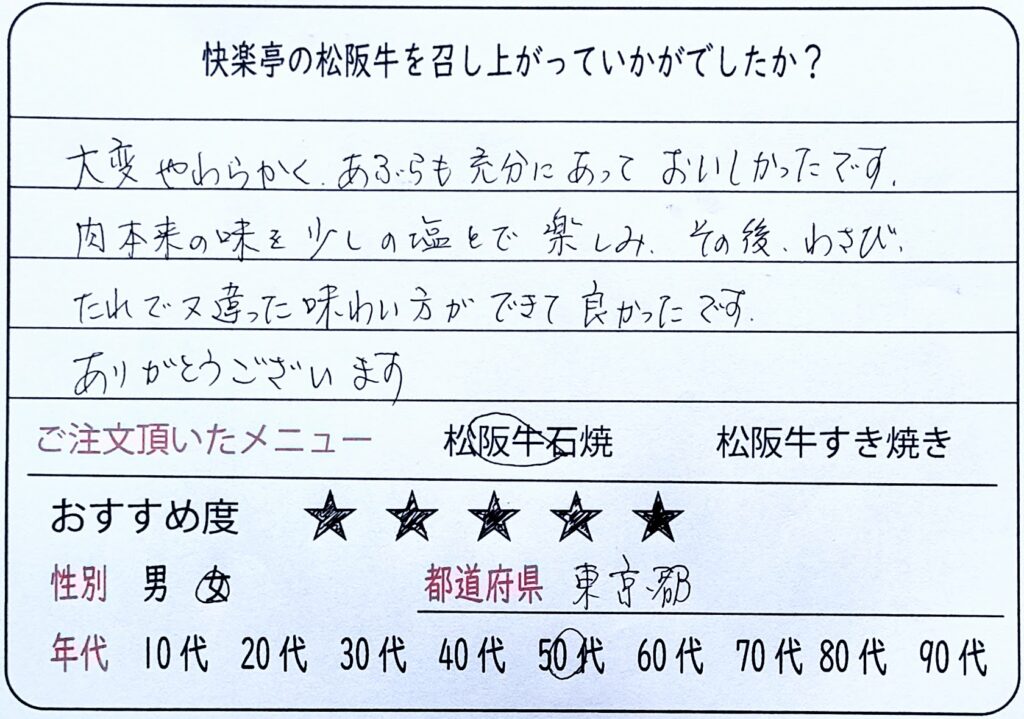 快楽亭の松阪牛を召し上がっていかがでしたか？
大変やわらかく、あぶらも充分にあっておいしかったです。
肉本来の味を少しの塩とで楽しみ、その後、わさび、
たれで又違った味わい方ができて良かったです。
ありがとうございます
ご注文頂いたメニュー 松阪牛石焼 松阪牛すき焼き
おすすめ度 ★★★★★
性別 男 女 都道府県 東京都
年代 10代 20代 30代 40代 50代 60代 70代 80代 90代